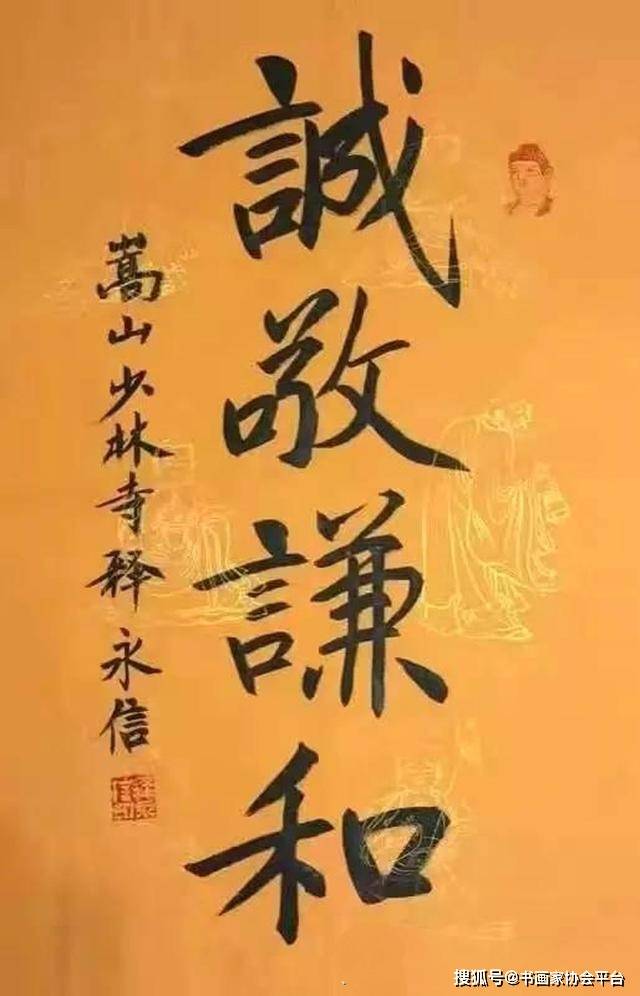 誠敬謙和
嵩山少林寺釋永信
搜狐号@书画家协会平台